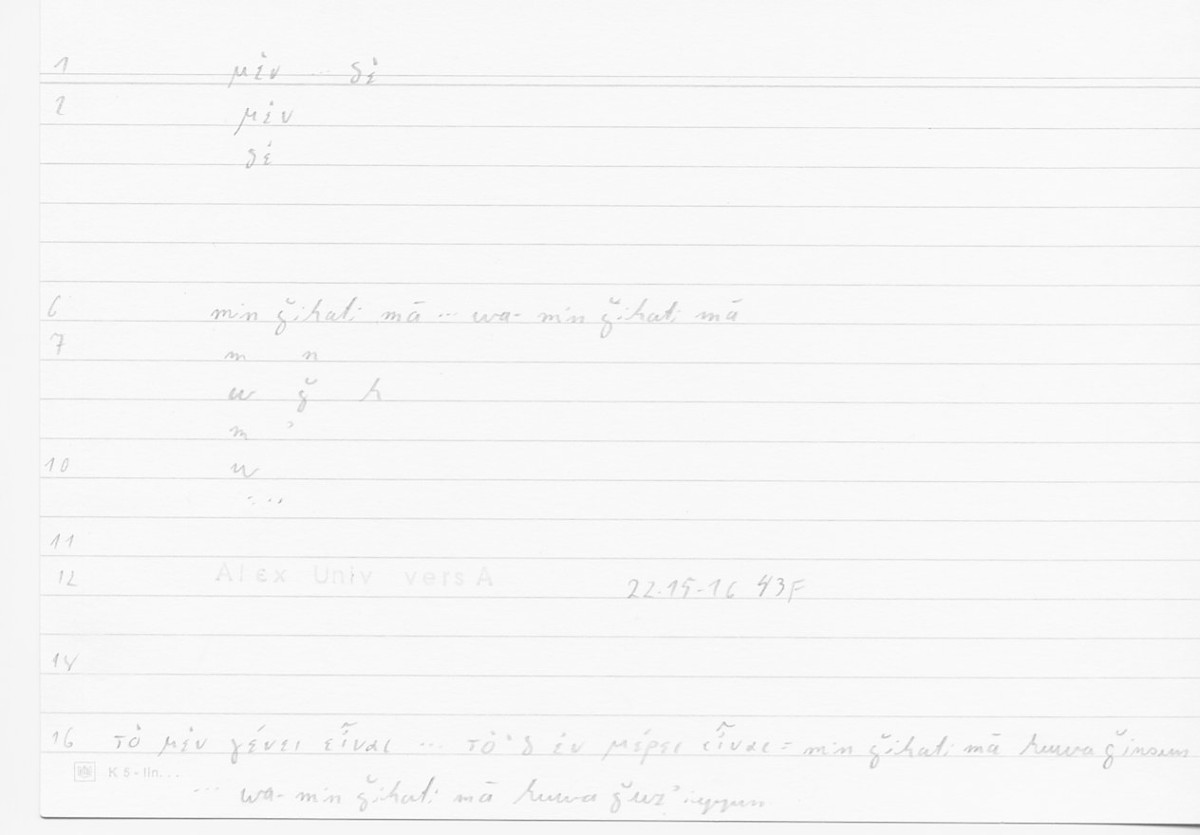 1 μὲν ... δὲ
2 μὲν
δέ
6 min ǧihati mā ... wa- min ǧihati mā
7 m n
w ǧ h
m ʾ
10 w
...
11
12 Alex Univ vers A 22.15-16 43F
14
16 τὸ μὲν γένει εἶναι ... τὸ δ ἐν μέρει εἶναι = min ǧihati mā huwa ǧinsun
K5-lin...
... wa- min ǧihati mā huwa ǧuzʾiyyun